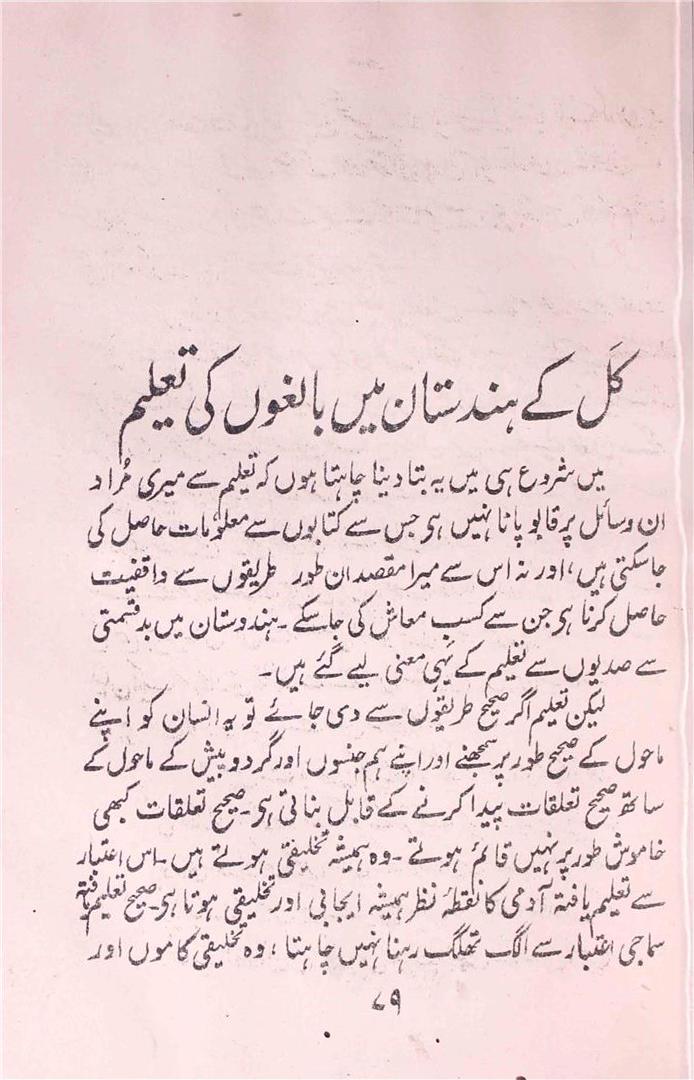 کَل کے ہندستان میں بالغوں کی تعلیم
میں شروع ہی میں یہ بتا دینا چاہتا ہوں کہ تعلیم سے میری مُراد
ان وسائل پر قابو پانا نہیں ہی جس سے کتابوں سے معلومات حاصل کی
جاسکتی ہیں، اور نہ اس سے میرا مقصد ان طور طریقوں سے واقفیت
حاصل کرنا ہی جن سے کسبِ معاش کی جاسکے ۔ ہندوستان میں بدقسمتی
سے صدیوں سے تعلیم کے یَہی معنی لیے گئے ہیں۔
لیکن تعلیم اگر صحیح طریقوں سے دی جائے تو یہ انسان کو اپنے
ماحول کے صحیح طور پر سمجھنے اور اپنے ہم جنسوں اور گرد و پیش کے ماحول کے
ساتھ صحیح تعلقات پیدا کرنے کے قابل بناتی ہی۔ صحیح تعلقات کبھی
خاموش طور پر نہیں قائم ہوتے ۔ وہ ہمیشہ تخلیقی ہوتے ہیں۔ اس اعتبار
سے تعلیم یافتہ آدمی کا نقطۂ نظر ہمیشہ ایجابی اور تخلیقی ہوتا ہی۔ صحیح تعلیم یافتہ
سماجی اعتبار سے الگ تھلگ رہنا نہیں چاہتا ، وہ تخلیقی کاموں اور
۷۹